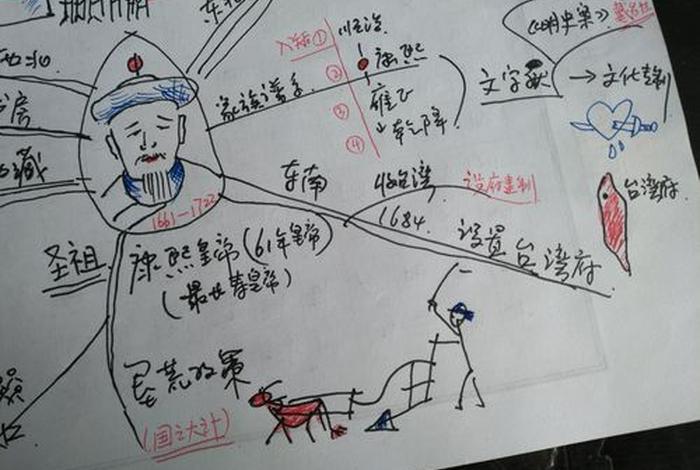 东北
西北
书房
西藏
圣祖
1661—1722
康熙皇帝(61年皇帝)
家族谱系
入关①
②
③
④
顺治
康熙
雍正
乾隆
文字狱
《明史案》
戴名世
→文化专制
东南
收台湾
设府建制
1684.
设置台湾府
台湾府.
垦荒政策
(国之大计)